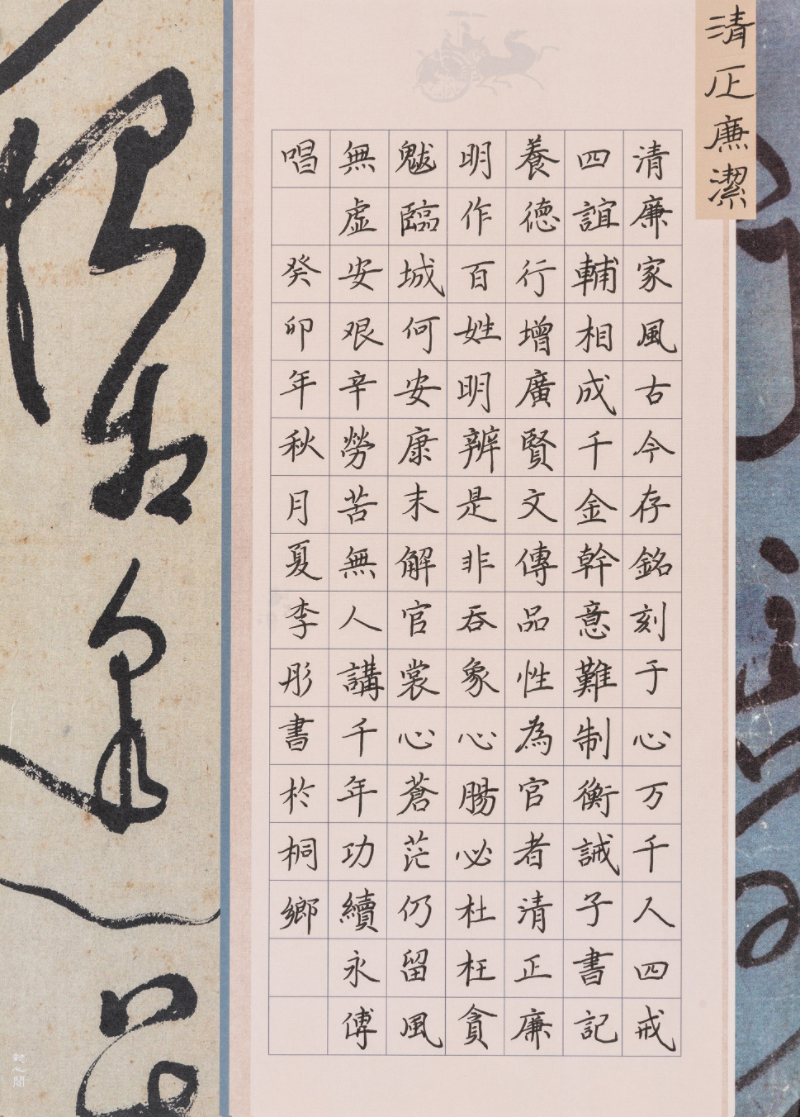 清正廉潔
清廉家風古今存銘刻于心万千人四戒
四誼輔相成千金幹意難制衡誡子書記
養德行增廣賢文傳品性為官者清正廉
明作百姓明辨是非吞象心腸必杜枉貪
魃臨城何安康末解官裳心蒼茫仍留風
無虚安艰辛勞苦無人講千年功續永傅
唱 癸卯年秋月夏李彤書於桐鄉